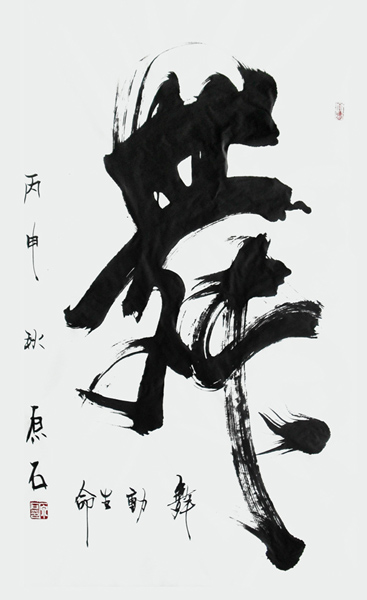 舞
舞動生命
丙申秋 原石